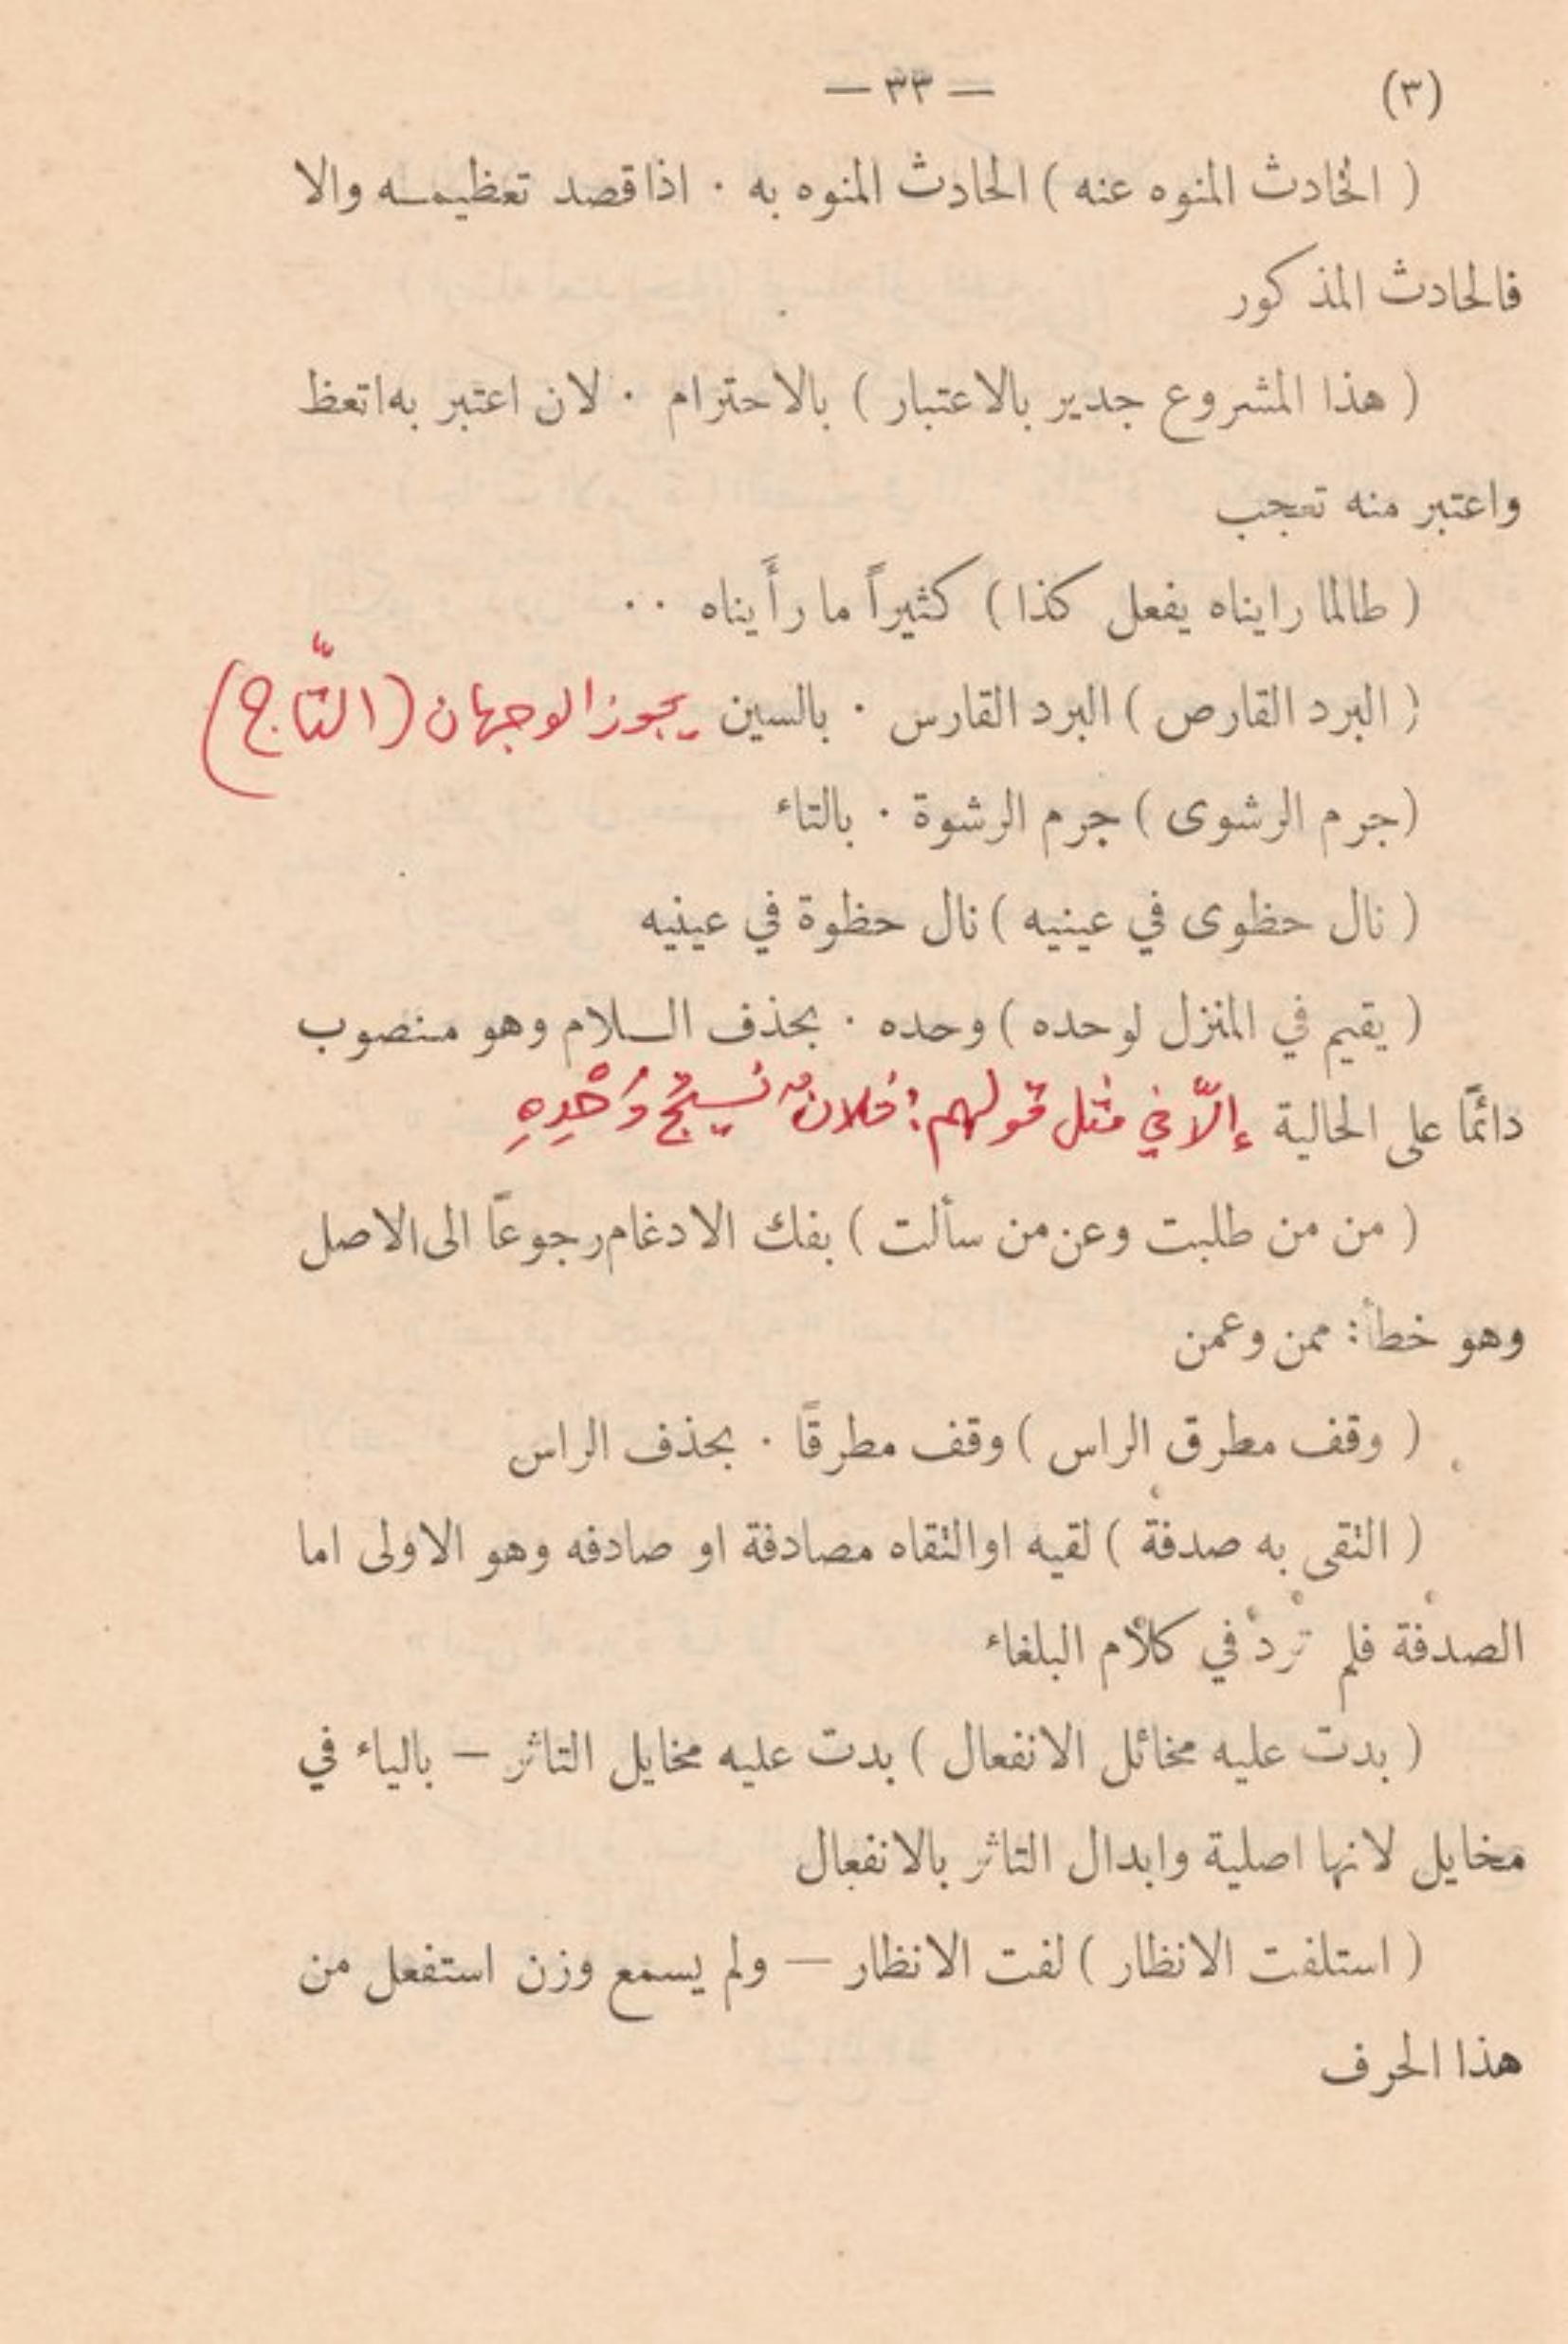 (٣) — ٣٣ —
( الحادث المنوه عنه ) الحادث المنوه به · اذا قصد تعظيمه والا
فالحادث المذكور
( هذا المشروع جدير بالاعتبار ) بالاحترام · لان اعتبر به اتعظ
واعتبر منه تعجب
( طالما رايناه يفعل كذا ) كثيراً ما رأَيناه ··
( البرد القارص ) البرد القارس · بالسين يجوز الوجهان (التّاج)
(جرم الرشوى ) جرم الرشوة · بالتاء
( نال حظوى في عينيه ) نال حظوة في عينيه
( يقيم في المنزل لوحده ) وحده · بحذف السلام وهو منصوب
دائمًا على الحالية إلاّ في مثل قولهم: فلانٌ نسيجُ وَحْدِهِ
( من من طلبت وعن من سألت ) بفك الادغام رجوعًا الى الاصل
وهو خطأ: ممن وعمن
( وقف مطرق الراس ) وقف مطرقًا · بحذف الراس
( التقى به صدفة ) لقيه او التقاه مصادفة او صادفه وهو الاولى اما
الصدفة فلم ترد في كلام البلغاء
( بدت عليه مخائل الانفعال ) بدت عليه مخايل التاثر — بالياء في
مخايل لانها اصلية وابدال التاثر بالانفعال
( استلفت الانظار ) لفت الانظار — ولم يسمع وزن استفعل من
هذا الحرف